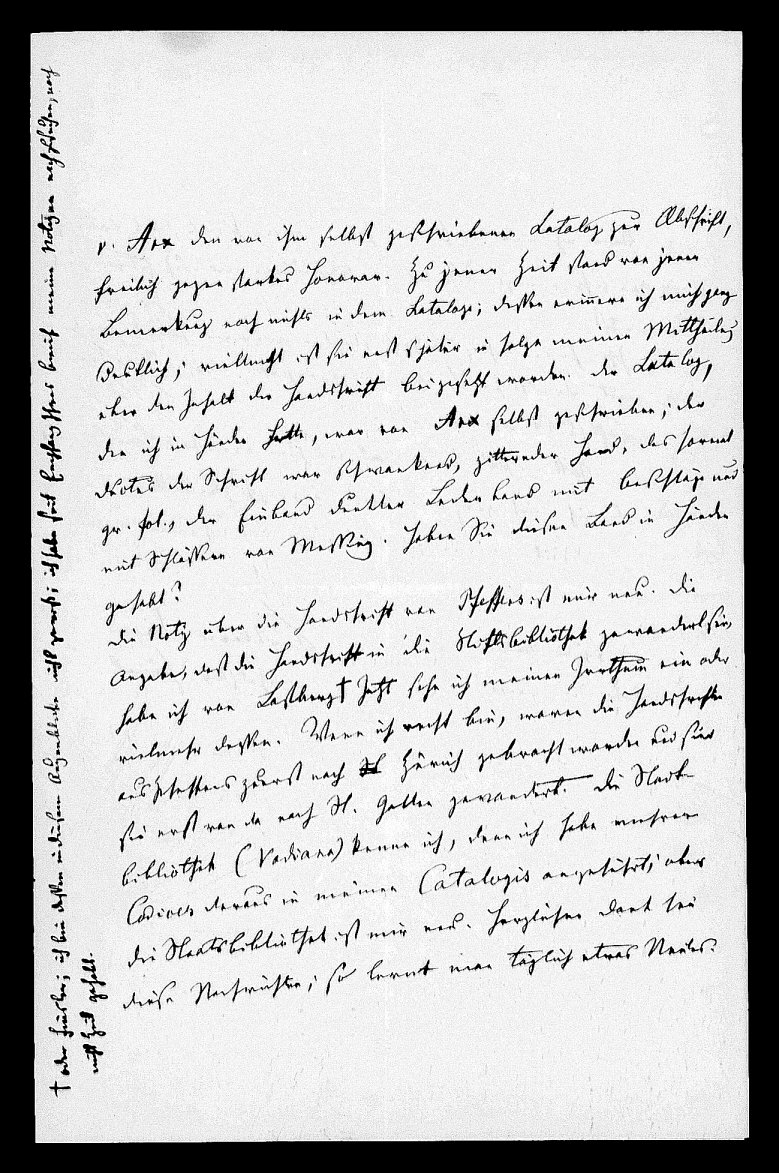 v. Arx den von ihm selbst geschriebenen Catalog zur Abschrift,
freilich gegen starkes Honorar. Zu jener Zeit stand von jener
Bemerkung noch nichts in dem Cataloge; dessen erinnere ich mich ganz
deutlich; vielleicht ist sie erst später in Folge meiner Mittheilung
über den Inhalt der Handschrift beigesetzt worden. Der Catalog,
den ich in Händen hatte, war von Arx selbst geschrieben; der
Ductus der Schrift war schwankend, zitternder Hand, das Format
gr. fol., der Einband dunkler Lederband mit Beschläge und
mit Schlössern von Messing. Haben Sie diesen Band in Händen
gehabt?
Die Notiz über die Handschrift von Pfeffers ist mir neu. Die
Angabe, daß die Handschrift in die Stiftsbibliothek gewandert sei,
habe ich von Laßberg† Jetzt sehe ich meinen Irrthum ein oder
vielmehr dessen. Wenn ich recht bin, waren die Handschriften
aus Pfeffers zuerst nach Zürich gebracht worden und sind
sie erst von da nach St. Gallen gewandert. Die Stadt-
bibliothek (Vadiana) kenne ich, denn ich habe mehrere
Codices daraus in meinen Catalogis angeführt; aber
die Staatsbibliothek ist mir neu. Herzlichen Dank für
diese Nachricht; so lernt man täglich etwas Neues.
† oder ; ich bin dessen in diesem Augenblicke nicht gewiß; ich habe seit meine Notizen nachzusehen, noch
nicht Zeit gehabt.